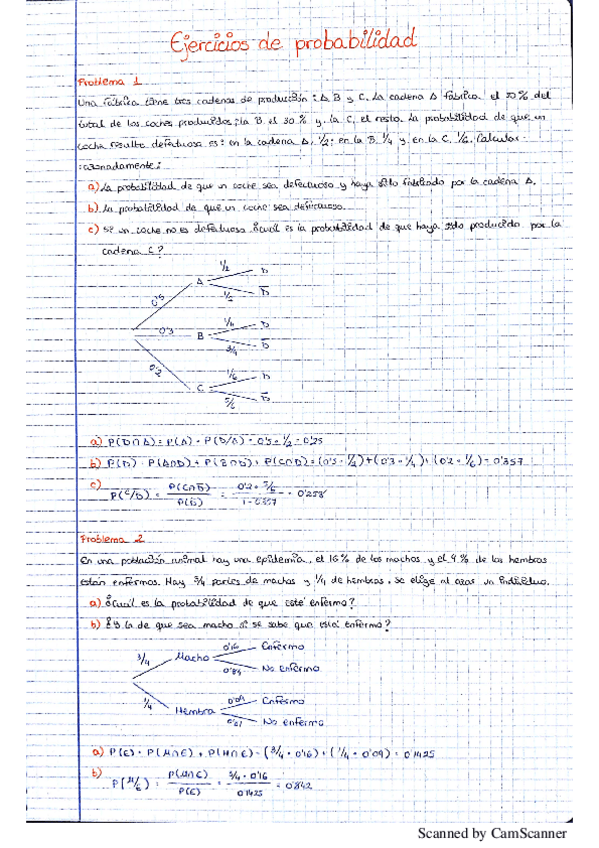 Ejercicios de probabilidad
Problema 1
Una fábrica tiene tres cadenas de producción: A, B y C. La cadena A fabrica el 50% del
total de los coches producidos; la B el 30% y la C, el resto. La probabilidad de que un
coche resulte defectuoso es: en la cadena A, 1/2; en la B 1/4 y en la C, 1/6. Calcular
razonadamente:
a) La probabilidad de que un coche sea defectuoso y haya sido fabricado por la cadena A.
b) La probabilidad de que un coche sea defectuoso.
c) Si un coche no es defectuoso ¿cuál es la probabilidad de que haya sido producido por la
cadena C?
1/2 D
A
0'5 1/2 D̅
1/4 D
0'3 B
3/4 D̅
0'2 1/6 D
C
5/6 D̅
a) P(D∩A) = P(A) · P(D/A) = 0'5 · 1/2 = 0'25
b) P(D) = P(A∩D) + P(B∩D) + P(C∩D) = (0'5 · 1/2) + (0'3 · 1/4) + (0'2 · 1/6) = 0'357
c) P(C/D̅) = P(C∩D̅) / P(D̅) = 0'2 · 5/6 / 1-0'357 = 0'258
Problema 2
En una población animal hay una epidemia, el 16% de los machos y el 9% de las hembras
están enfermos. Hay 3/4 partes de machos y 1/4 de hembras, se elige al azar un individuo.
a) ¿Cuál es la probabilidad de que esté enfermo?
b) ¿Y la de que sea macho si se sabe que está enfermo?
0'16 Enfermo
3/4 Macho
0'84 No enfermo
0'09 Enfermo
1/4 Hembra
No enfermo
a) P(E) = P(M∩E) + P(H∩E) = (3/4 · 0'16) + (1/4 · 0'09) = 0'1425
b) P(M/E) = P(M∩E) / P(E) = 3/4 · 0'16 / 0'1425 = 0'842
Scanned by CamScanner